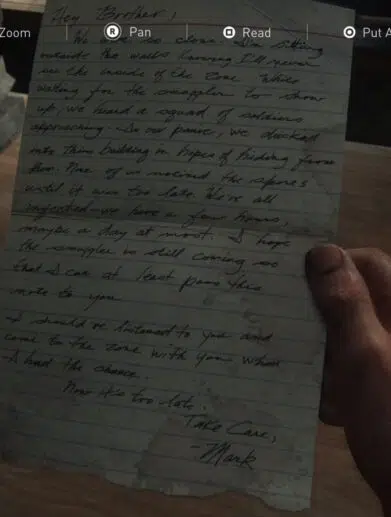 Zoom R Pan Read Put A
Hey Brother,
We are so close. I'm sitting
outside the walls knowing I'll never
see the inside of the zone. While
waiting for the smuggler to show
up, we heard a squad of soldiers
approaching. In our panic, we ducked
into this building in hopes of hiding from
them. None of us noticed the spores
until it was too late. We're all
infected - we have a few hours,
maybe a day at most. I hope
the smuggler is still coming so
that I can at least pass this
note to you.
I should've listened to you and
come to the zone with you when
I had the chance.
Now it's too late.
Take Care,
-Mark